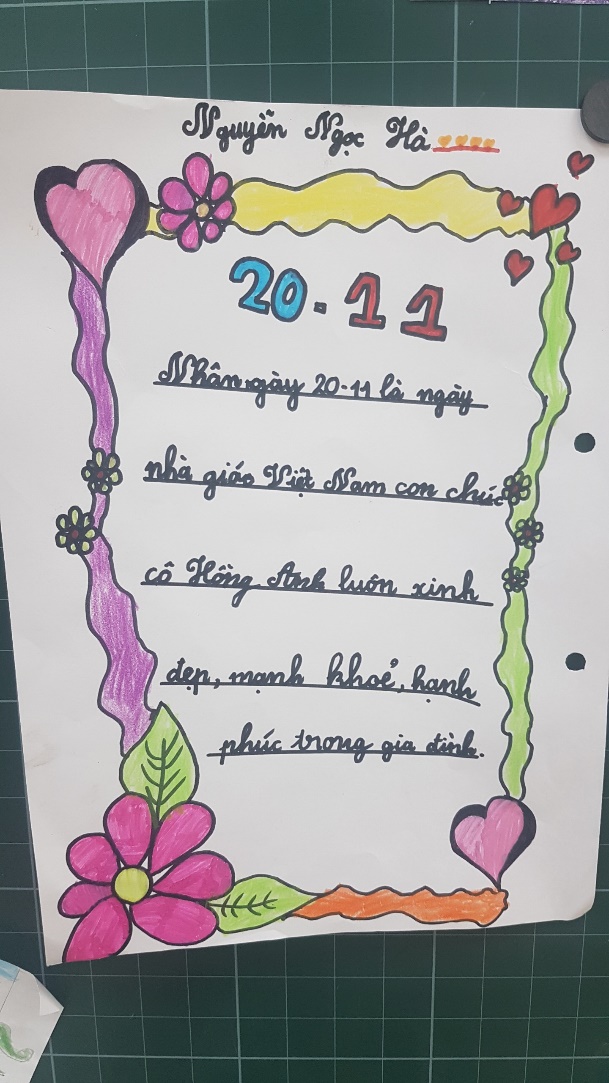 Nguyễn Ngọc Hà
20.11
Nhân ngày 20-11 là ngày
nhà giáo Việt Nam con chúc
cô Hồng Anh luôn xinh
đẹp, mạnh khoẻ, hạnh
phúc trong gia đình.